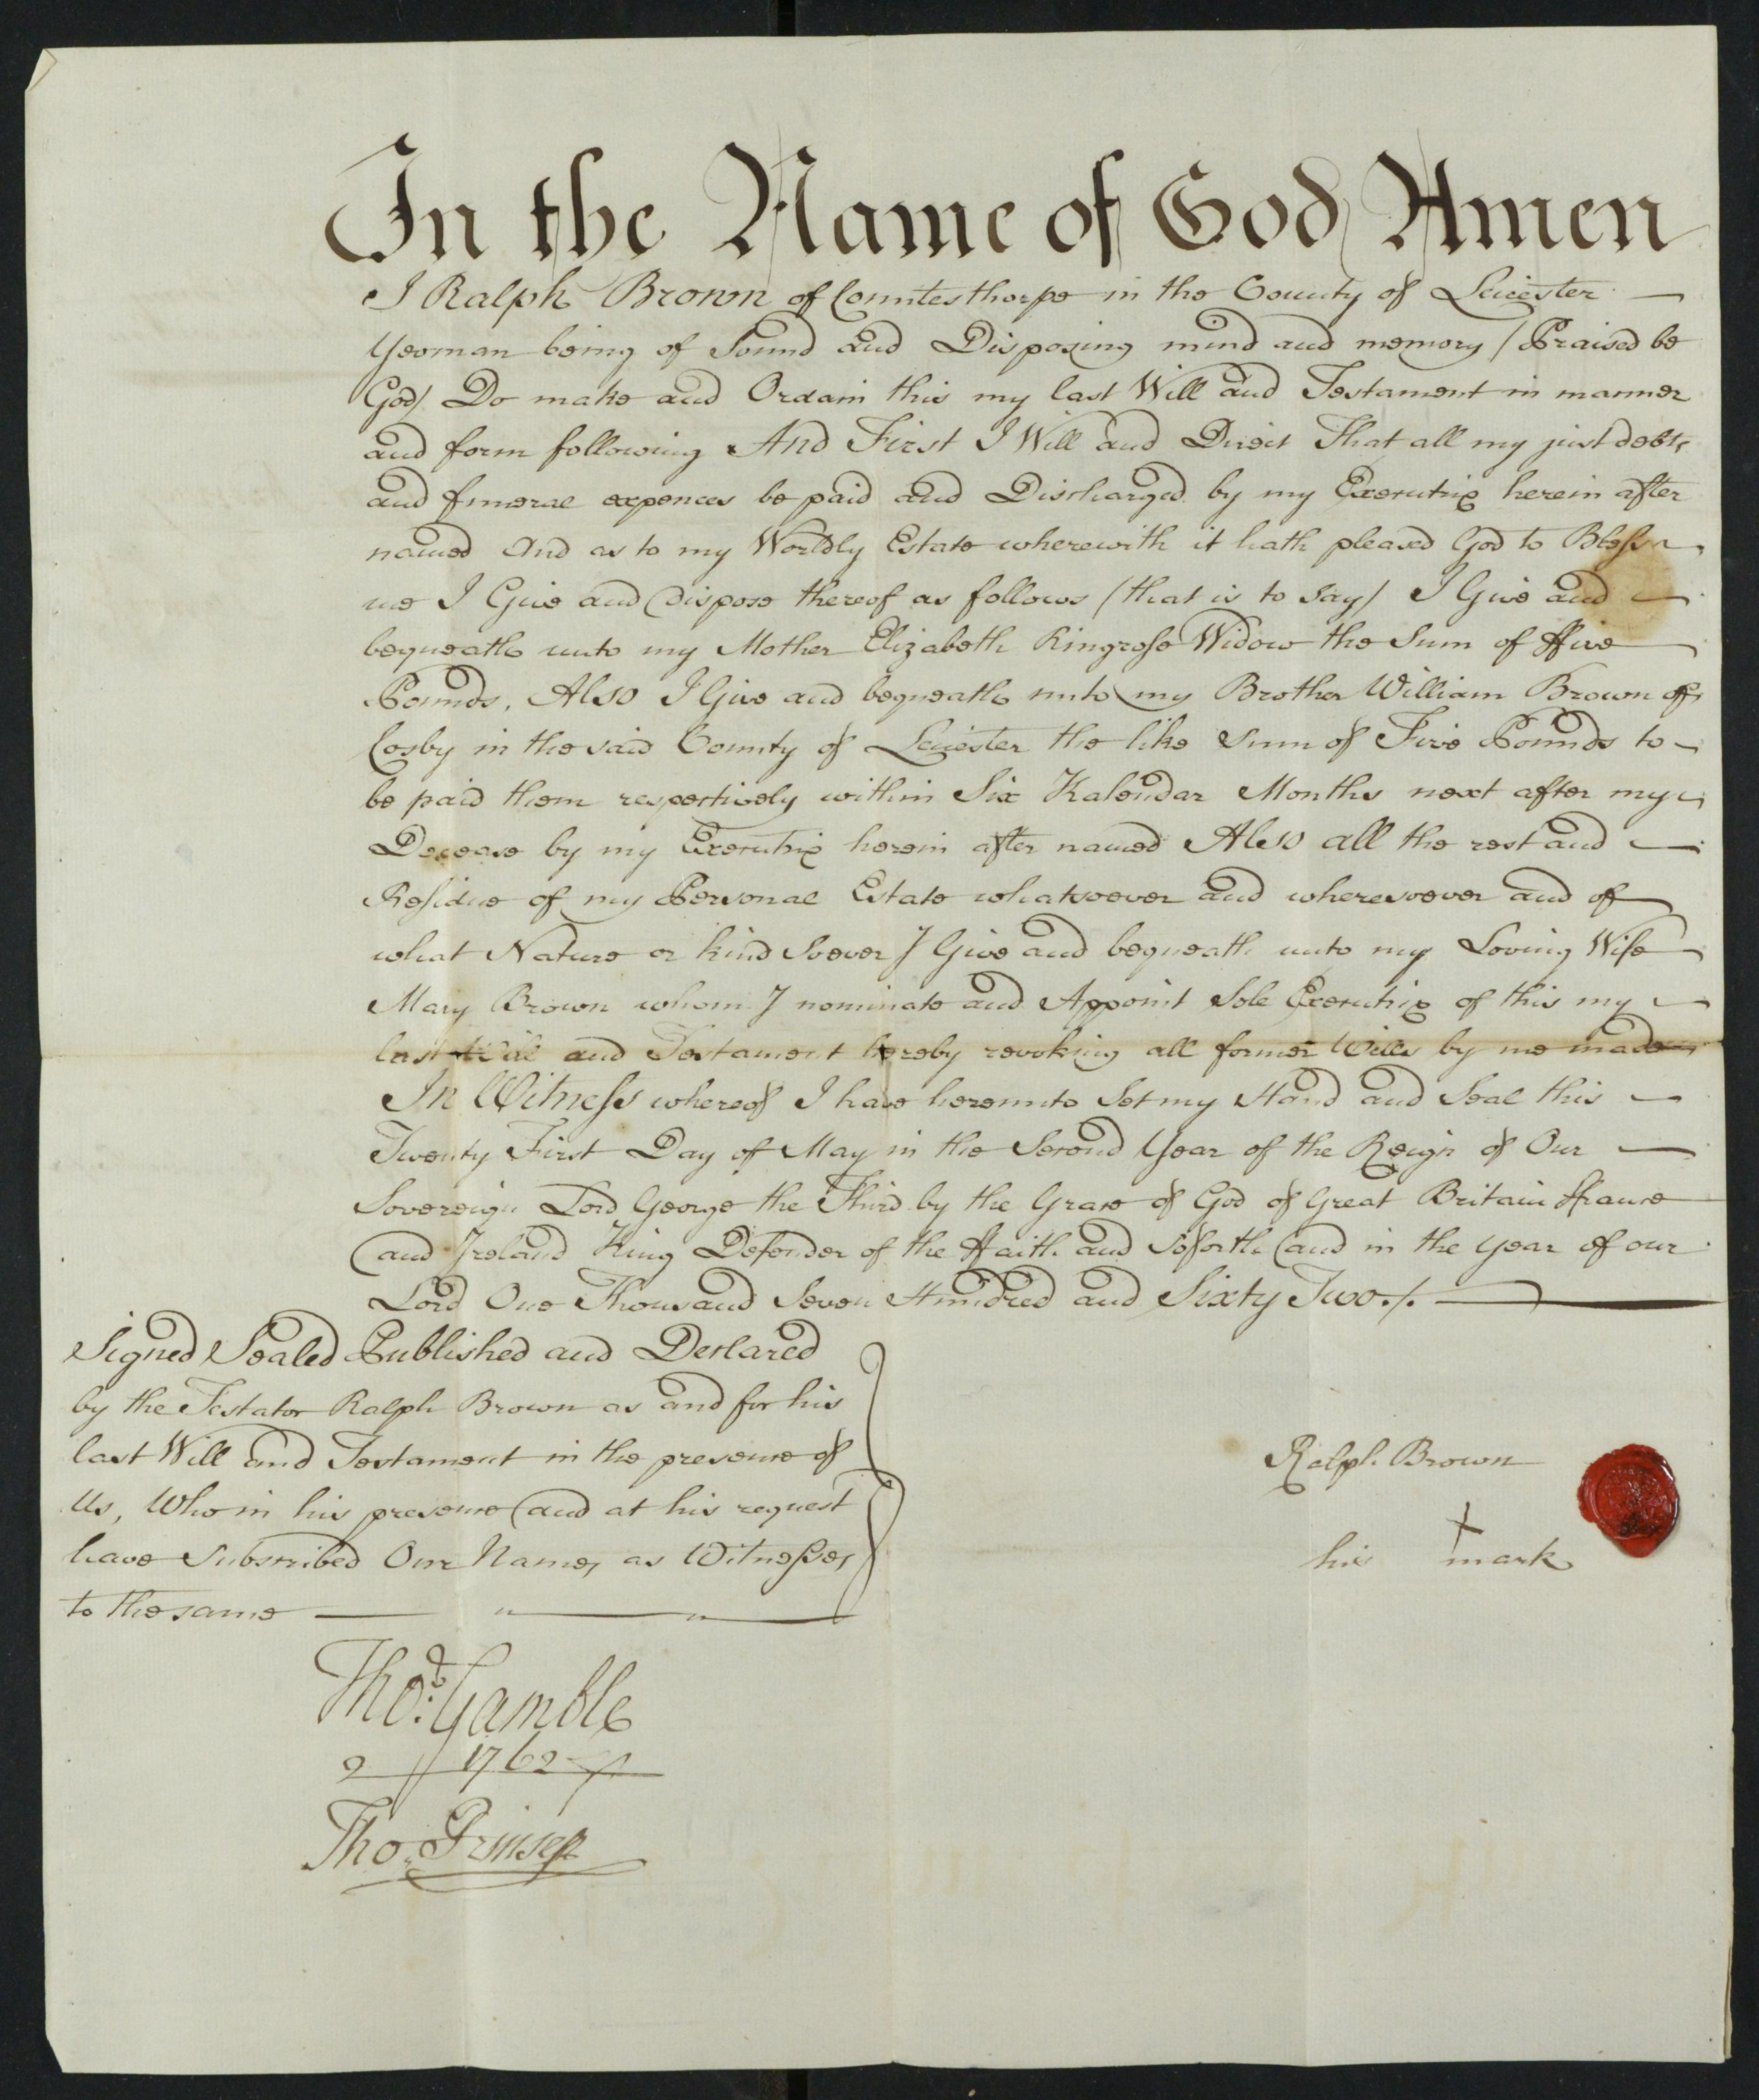 In the Name of God Amen
I Ralph Brown of Countesthorpe in the County of Leicester
Yeoman being of Sound and Disposing mind and memory / Praised be
God / Do make and Ordain this my last Will and Testament in manner
and form following And First I Will and Direct That all my just debts
and funeral expences be paid and Discharged by my Executrix herein after
named And as to my Worldly Estate wherewith it hath pleased God to Bless
me I Give and Dispose thereof as follows / that is to say / I Give and
bequeath unto my Mother Elizabeth Ringrose Widow the Sum of ffive
Pounds, Also I Give and bequeath unto my Brother William Brown of
Cosby in the said County of Leicester the like Sum of Five Pounds to
be paid them respectively within Six Kalendar Months next after my
Decease by my Executrix herein after named Also all the rest and
Residue of my Personal Estate whatsoever and wheresoever and of
what Nature or kind Soever I Give and bequeath unto my Loving Wife
Mary Brown whom I nominate and Appoint Sole Executrix of this my
last Will and Testament hereby revoking all former Wills by me made
In Witness whereof I have hereunto Set my Hand and Seal this
Twenty First Day of May in the Second Year of the Reign of Our
Sovereign Lord George the Third by the Grace of God of Great Britain ffrance
and Ireland King Defender of the ffaith and Soforth and in the year of our
Lord One Thousand Seven Hundred and Sixty Two ./.
Signed Sealed Published and Declared
by the Testator Ralph Brown as and for his
last Will and Testament in the presence of
Us, Who in his presence and at his request
have Subscribed Our Names as Witnesses
to the same
Ralph Brown
his mark
Tho.s Gamble
1762
Tho. Prinsep